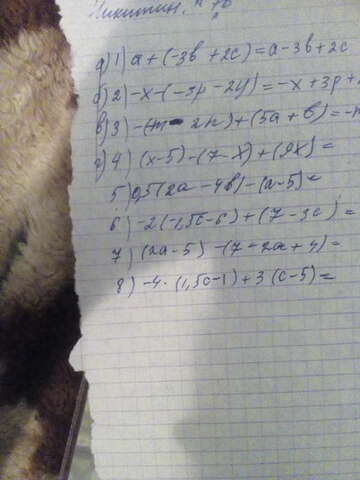 а) 1) a + (-3в + 2c) = a - 3в + 2c
б) 2) -x - (-3p - 2y) = -x + 3p +
в) 3) -(m - 2n) + (5a + b) = -m
г) 4) (x-5) - (7 - x) + (9x) =
5) 0,5 (2a - 4в) - (a-5) =
6) -2 (-1,5c-6) + (7 - 3c) =
7) (2a-5) - (7 - 2a + 4) =
8) -4 · (1,5c-1) + 3 (c-5) =